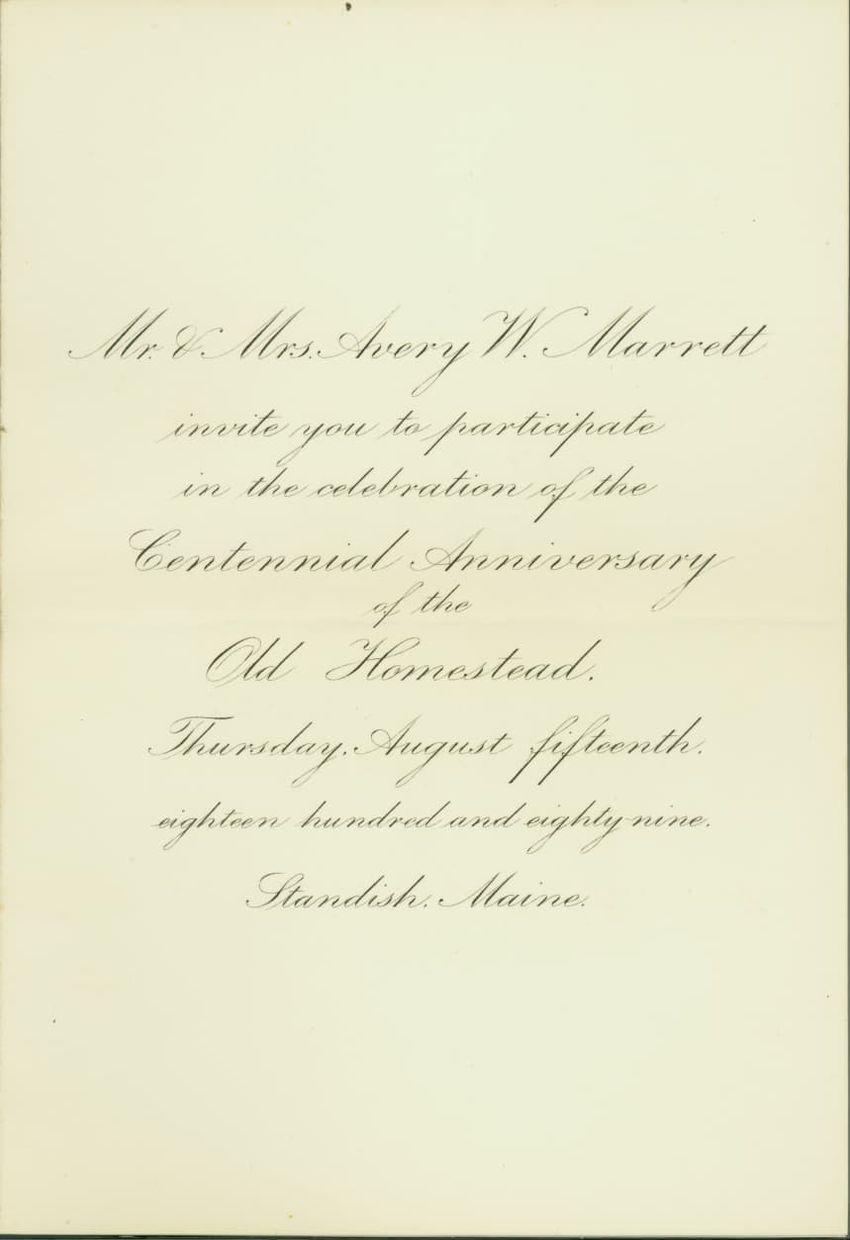 Mr. & Mrs. Avery W. Marrett
invite you to participate
in the celebration of the
Centennial Anniversary
of the
Old Homestead.
Thursday, August fifteenth,
eighteen hundred and eighty-nine.
Standish, Maine.